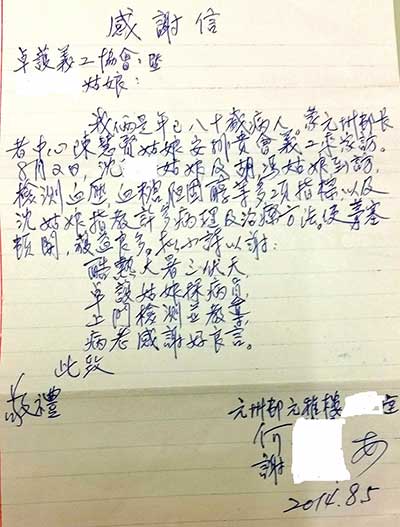 感謝信
卓護義工協會: 暨
姑娘:
我倆是年已八十歲病人。蒙元州邨長
者中心陳慧賢姑娘安排貴會義工來家訪。
8月2日,沈 姑娘及胡馮姑娘到訪,
檢測血壓,血糖,胆固醇等多項指標,以及
沈姑娘指教許多病理及治療方法。使茅塞
頓開,獲益良多。以小詩以謝:
酷熱大暑三伏天,
卓護姑娘探病員,
上門檢測並教導,
病者感謝好良言。
此致
敬禮
元州邨元雅樓 室
何
謝
2014.8.5